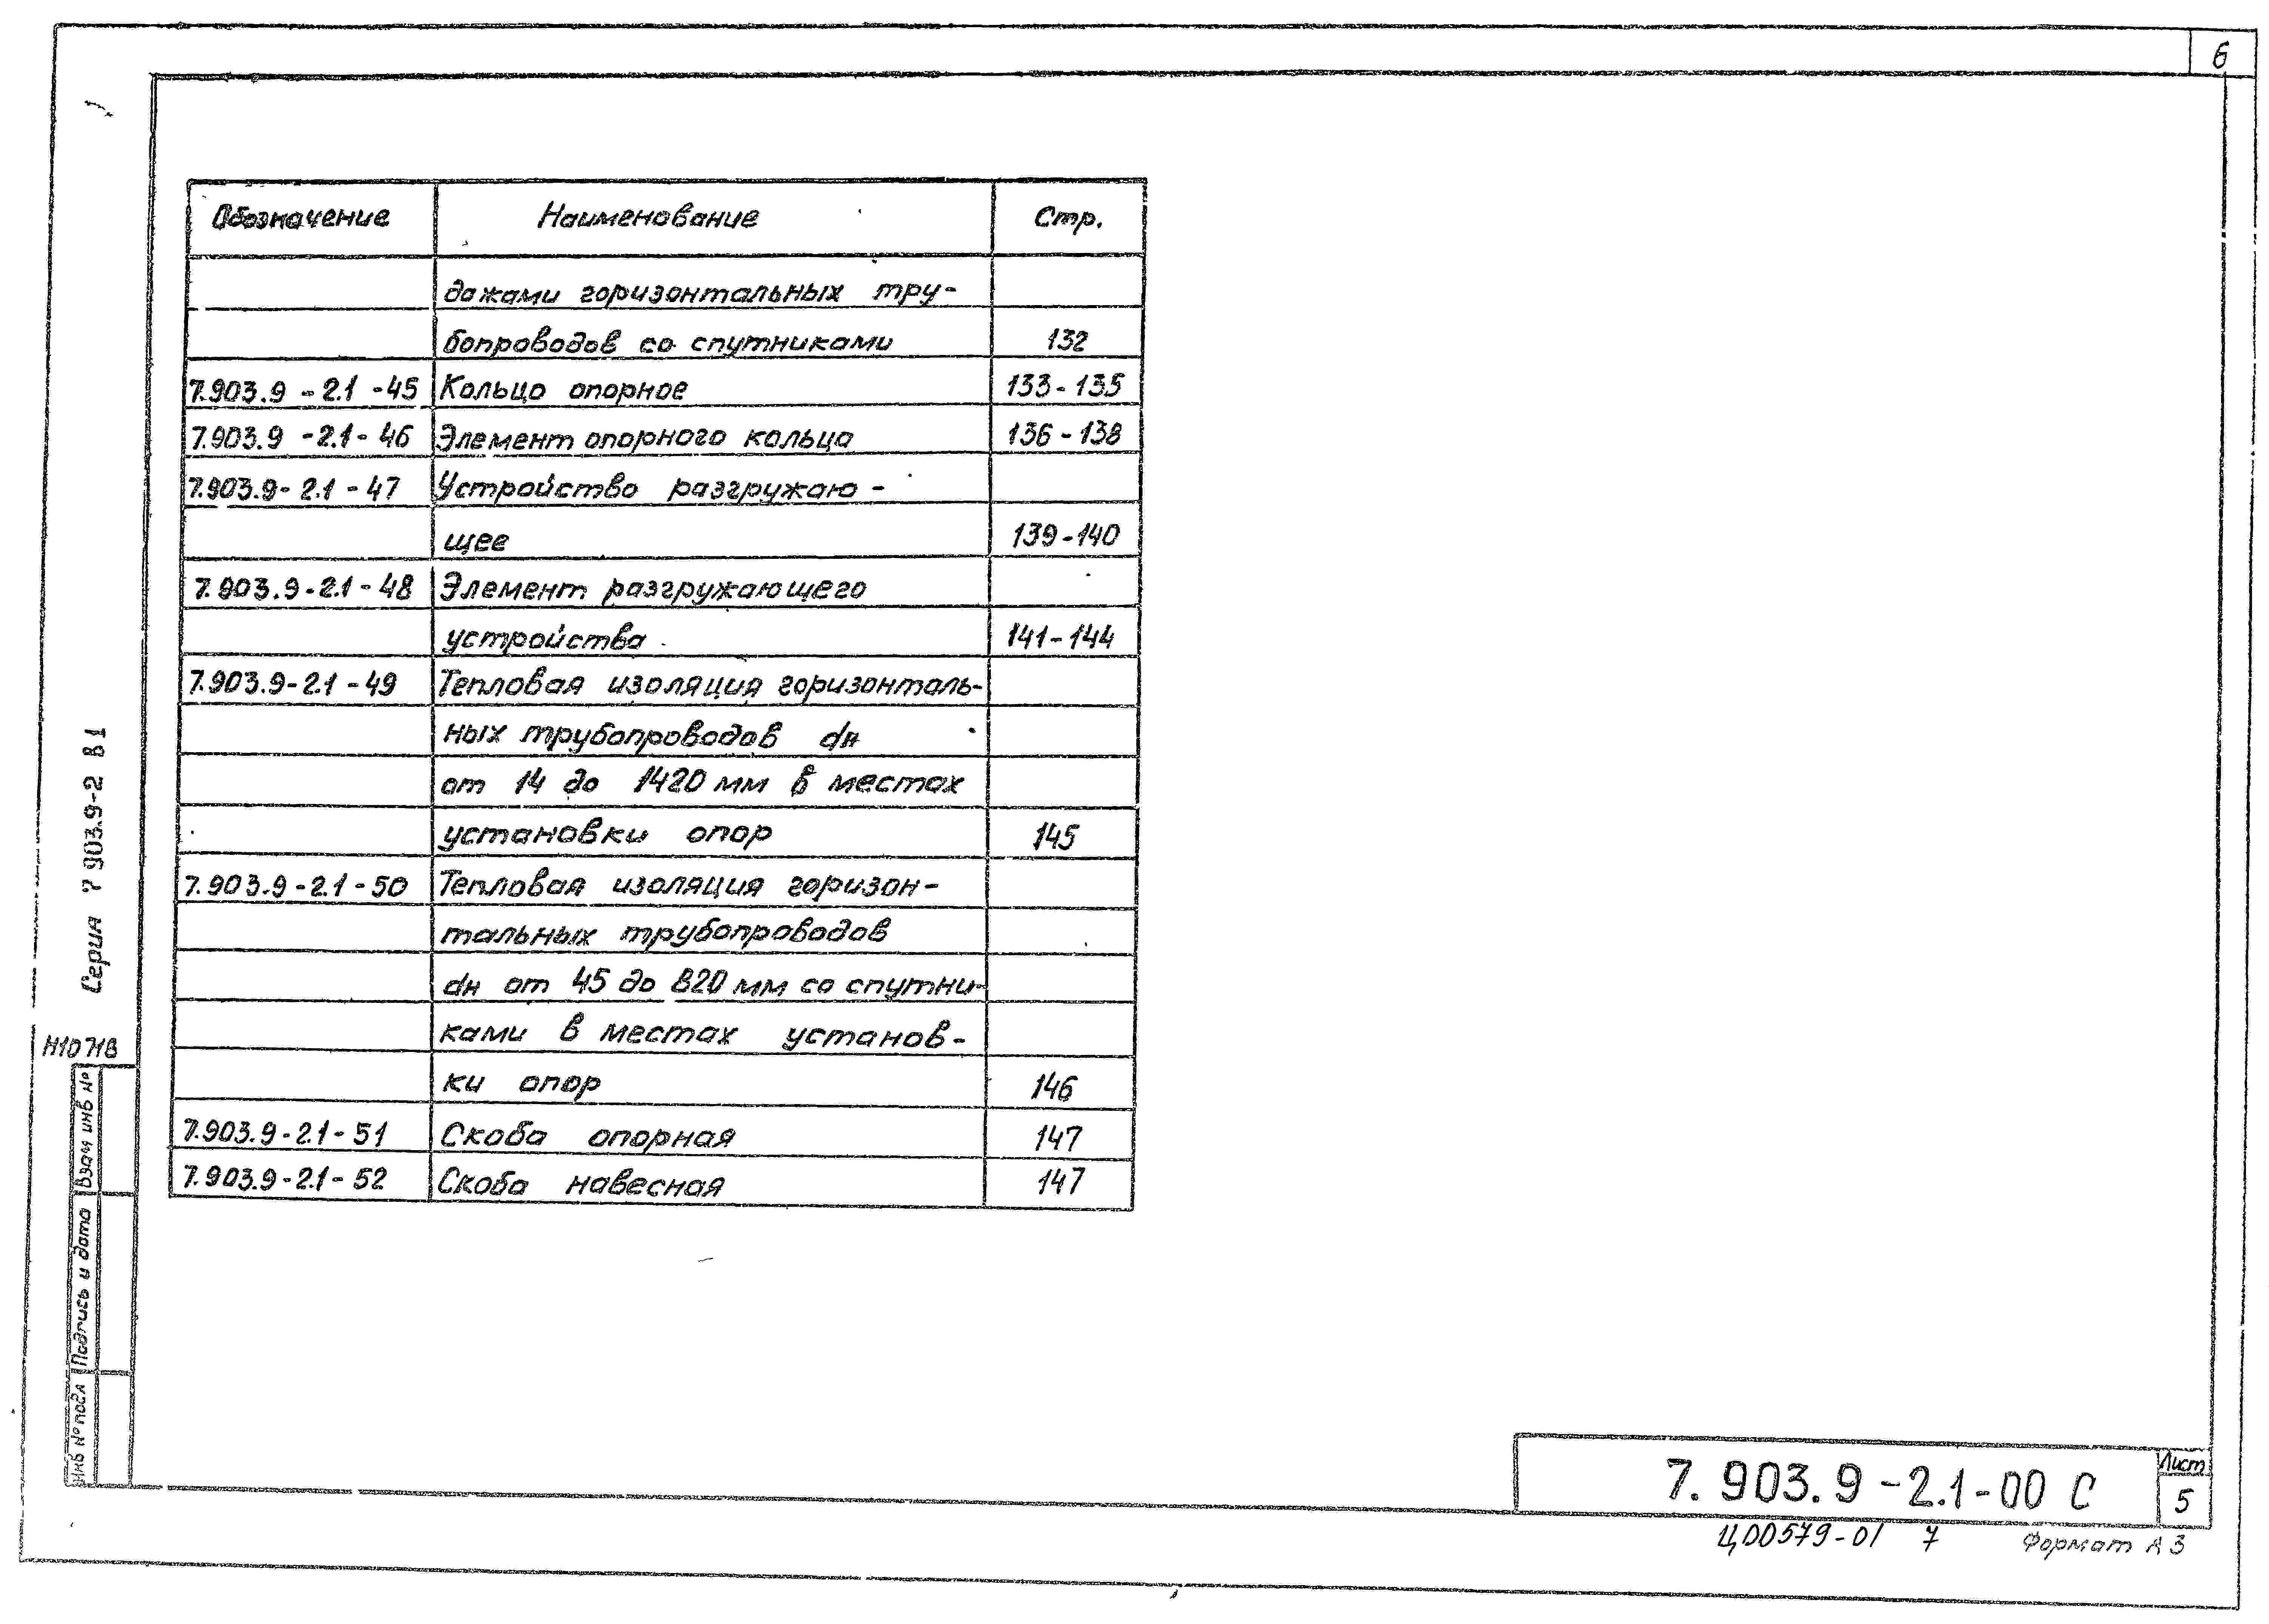 6
Обозначение Наименование Стр.
дажами горизонтальных тру-
бопроводов со спутниками 132
7.903.9-2.1-45 Кольцо опорное 133-135
7.903.9-2.1-46 Элемент опорного кольца 136-138
7.903.9-2.1-47 Устройство разгружаю-
щее 139-140
7.903.9-2.1-48 Элемент разгружающего
устройства 141-144
7.903.9-2.1-49 Тепловая изоляция горизонталь-
ных трубопроводов dн
от 14 до 1420 мм в местах
установки опор 145
7.903.9-2.1-50 Тепловая изоляция горизон-
тальных трубопроводов
dн от 45 до 820 мм со спутни-
ками в местах установ-
ки опор 146
7.903.9-2.1-51 Скоба опорная 147
7.903.9-2.1-52 Скоба навесная 147
Серия 7 903.9-2 В 1
Взам инв №
Подпись и дата
Инв № подл
7.903.9-2.1-00 С
Лист
5
ЦО0579-01 7 Формат А3